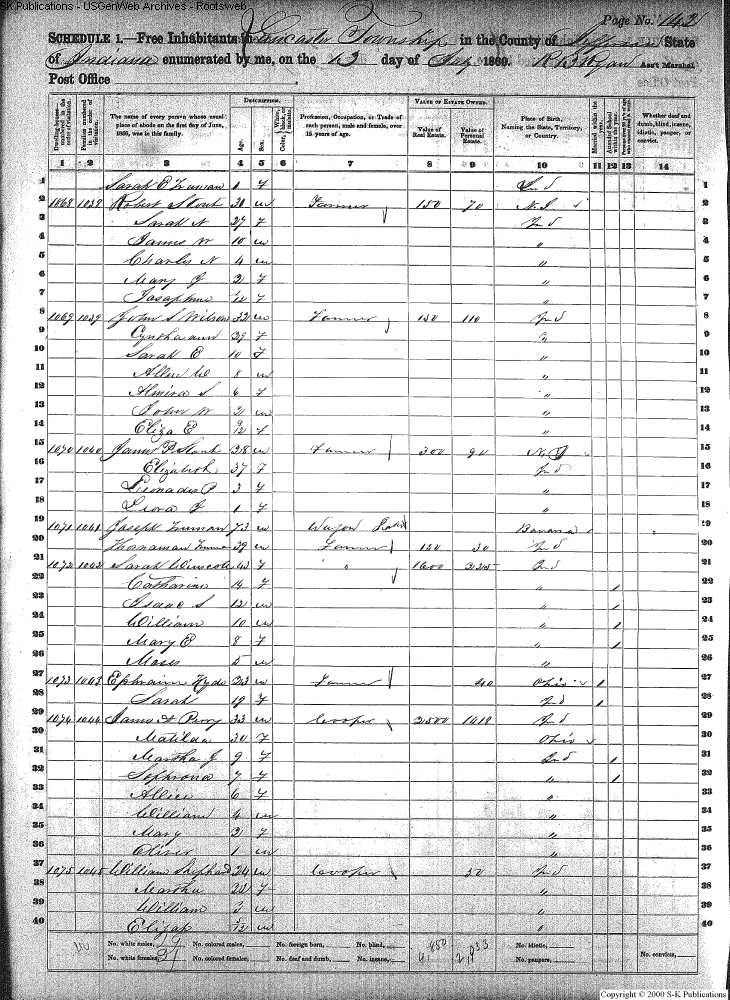 S-K Publications - USGenWeb Archives - Rootsweb
Page No. 142
SCHEDULE 1.—Free Inhabitants in Lancaster Township in the County of Jefferson State
of Indiana enumerated by me, on the 13 day of July 1860. Ass't Marshal.
Post Office
Dwelling-houses—numbered in the order of visitation.
Families numbered in the order of visitation.
The name of every person whose usual place of abode on the first day of June, 1860, was in this family.
DESCRIPTION.
Age.
Sex.
Color, White, black, or mulatto.
Profession, Occupation, or Trade of each person, male and female, over 15 years of age.
VALUE OF ESTATE OWNED.
Value of Real Estate.
Value of Personal Estate.
Place of Birth, Naming the State, Territory, or Country.
Married within the year.
Attended School within the year.
Whether deaf and dumb, blind, insane, idiotic, pauper, or convict.
1 2 3 4 5 6 7 8 9 10 11 12 13 14
1 Sarah E Truman 1 F Ind 1
2 1068 1038 Robert Stout 30 m Farmer 150 70 N.J 2
3 Sarah N 27 F Ind 3
4 James W 10 m " 4
5 Charles N 4 m " 5
6 Mary J 2 F " 6
7 Josaphine /12 F " 7
8 1069 1039 John S Wilson 32 m Farmer 150 110 Ind 8
9 Cynthaann 29 F " 9
10 Sarah E 10 F " 10
11 Allen W 8 m " 11
12 Almira S 6 F " 12
13 John W 2 m " 13
14 Eliza E 9/12 F " 14
15 1070 1040 James P Stout 38 m Farmer 300 90 N.J 15
16 Elizabeth 37 F Ind 16
17 Leonadus P 3 F " 17
18 Leora J 1 F " 18
19 1071 1041 Joseph Truman 73 m Wagon 19
20 39 m Farmer 150 30 Ind 20
21 1072 1042 Sarah Winscote 43 F " 1600 325 Ind 21
22 Catharine 14 F " 1 22
23 Isaac S 12 m " 1 23
24 William 10 m " 1 24
25 Mary E 8 F " 1 25
26 Moses 5 m " 26
27 1073 1043 Ephraim Hyde 23 m Farmer 40 Ohio 1 27
28 Sarah 19 F Ind 1 28
29 1074 1044 James A Perry 33 m Cooper 2500 1418 Ind 29
30 Matilda 30 F Ohio 30
31 Martha J 9 F Ind 1 31
32 Sophrona 7 F " 1 32
33 Allice 6 F " 33
34 William 4 m " 34
35 Mary 3 F " 35
36 Oliver 1 m " 36
37 1075 1045 William Shephard 24 m Cooper 50 Ind 37
38 Martha 22 F " 38
39 William 3 m " 39
40 Elijah /12 m " 40
No. white males, No. colored males, No. foreign born, No. blind, No. idiotic,
No. white females, No. colored females, No. deaf and dumb, No. insane, No. paupers, No. convicts,
Copyright © 2000 S-K Publications